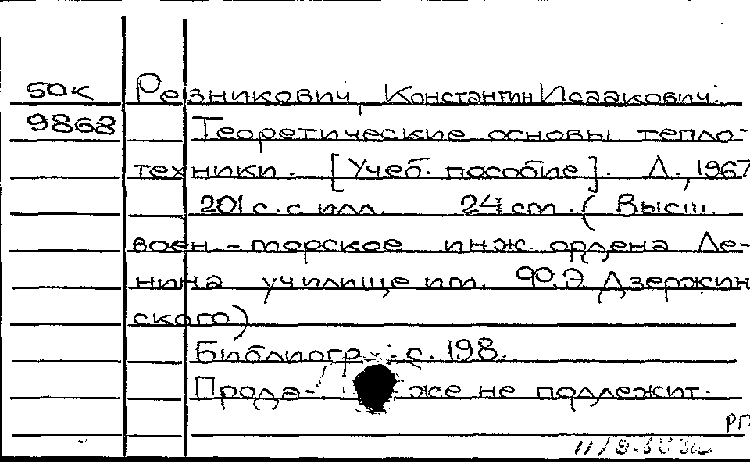 50к Резникович, Константин Исаакович.
9868 Теоретические основы тепло-
техники. [Учеб. пособие]. Л., 1967
201 с. с илл. 24 см. (Высш.
воен.-морское инж. ордена Ле-
нина училище им. Ф.Э. Дзержин
ского)
Библиогр.: с. 198.
Прода- же не подлежит.
РП